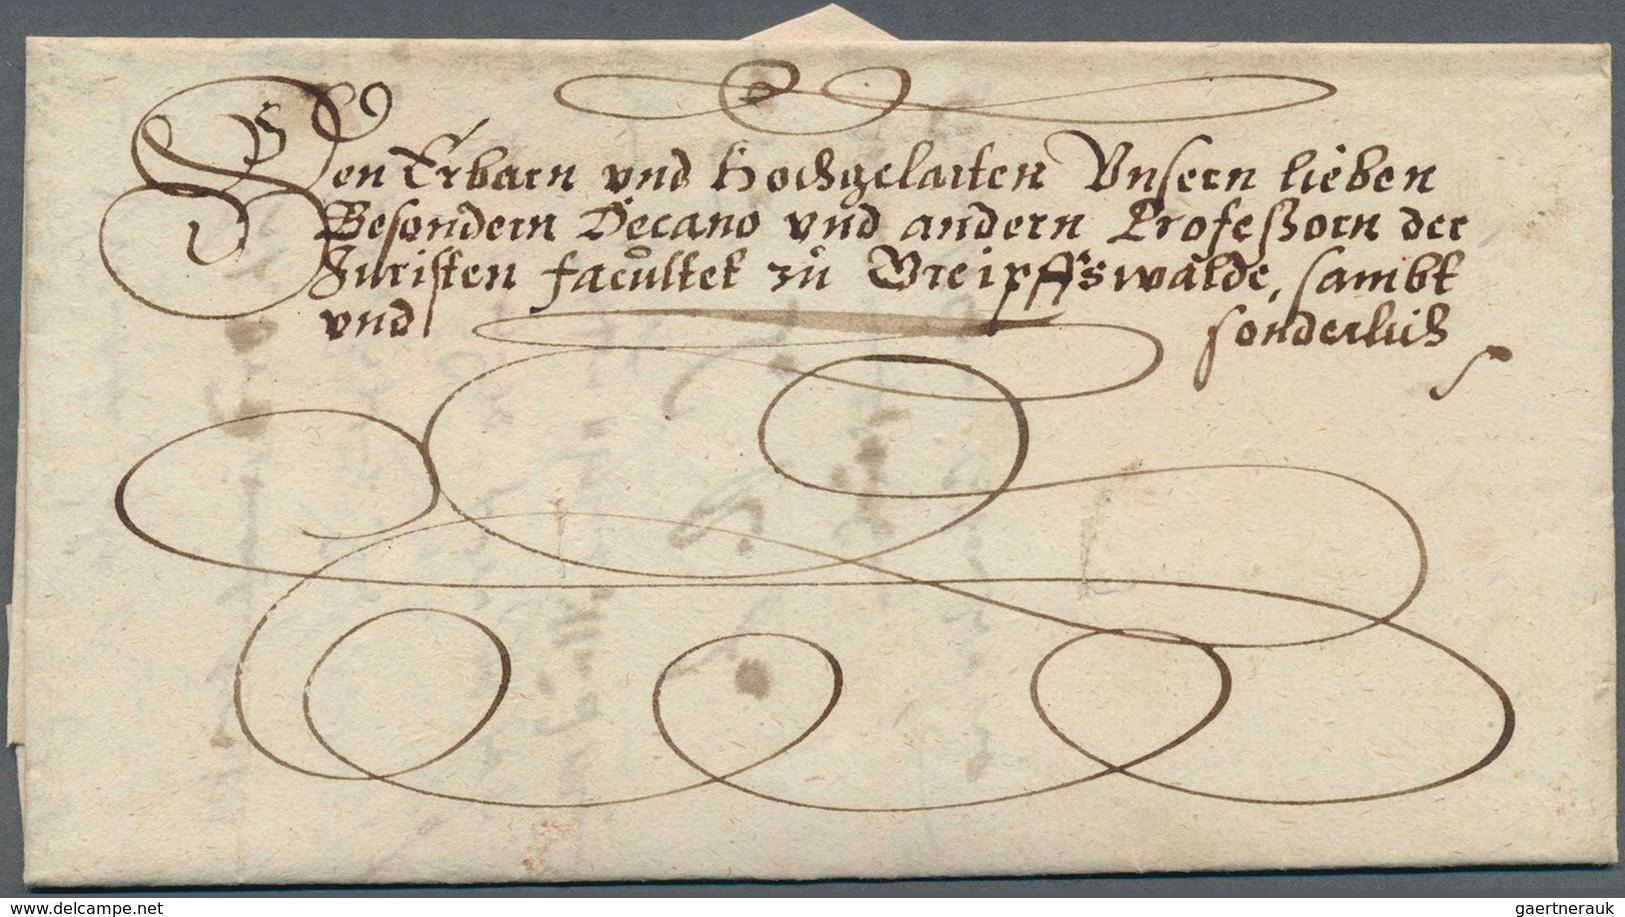 Den Erbarn vnd Hochgelarten Vnsern lieben
Besondern Decano vnd andern Profeßorn der
Juristen facultet zu Greipffswalde, sambt
vnd sonderlich
www.delcampe.net
gaertnerauk